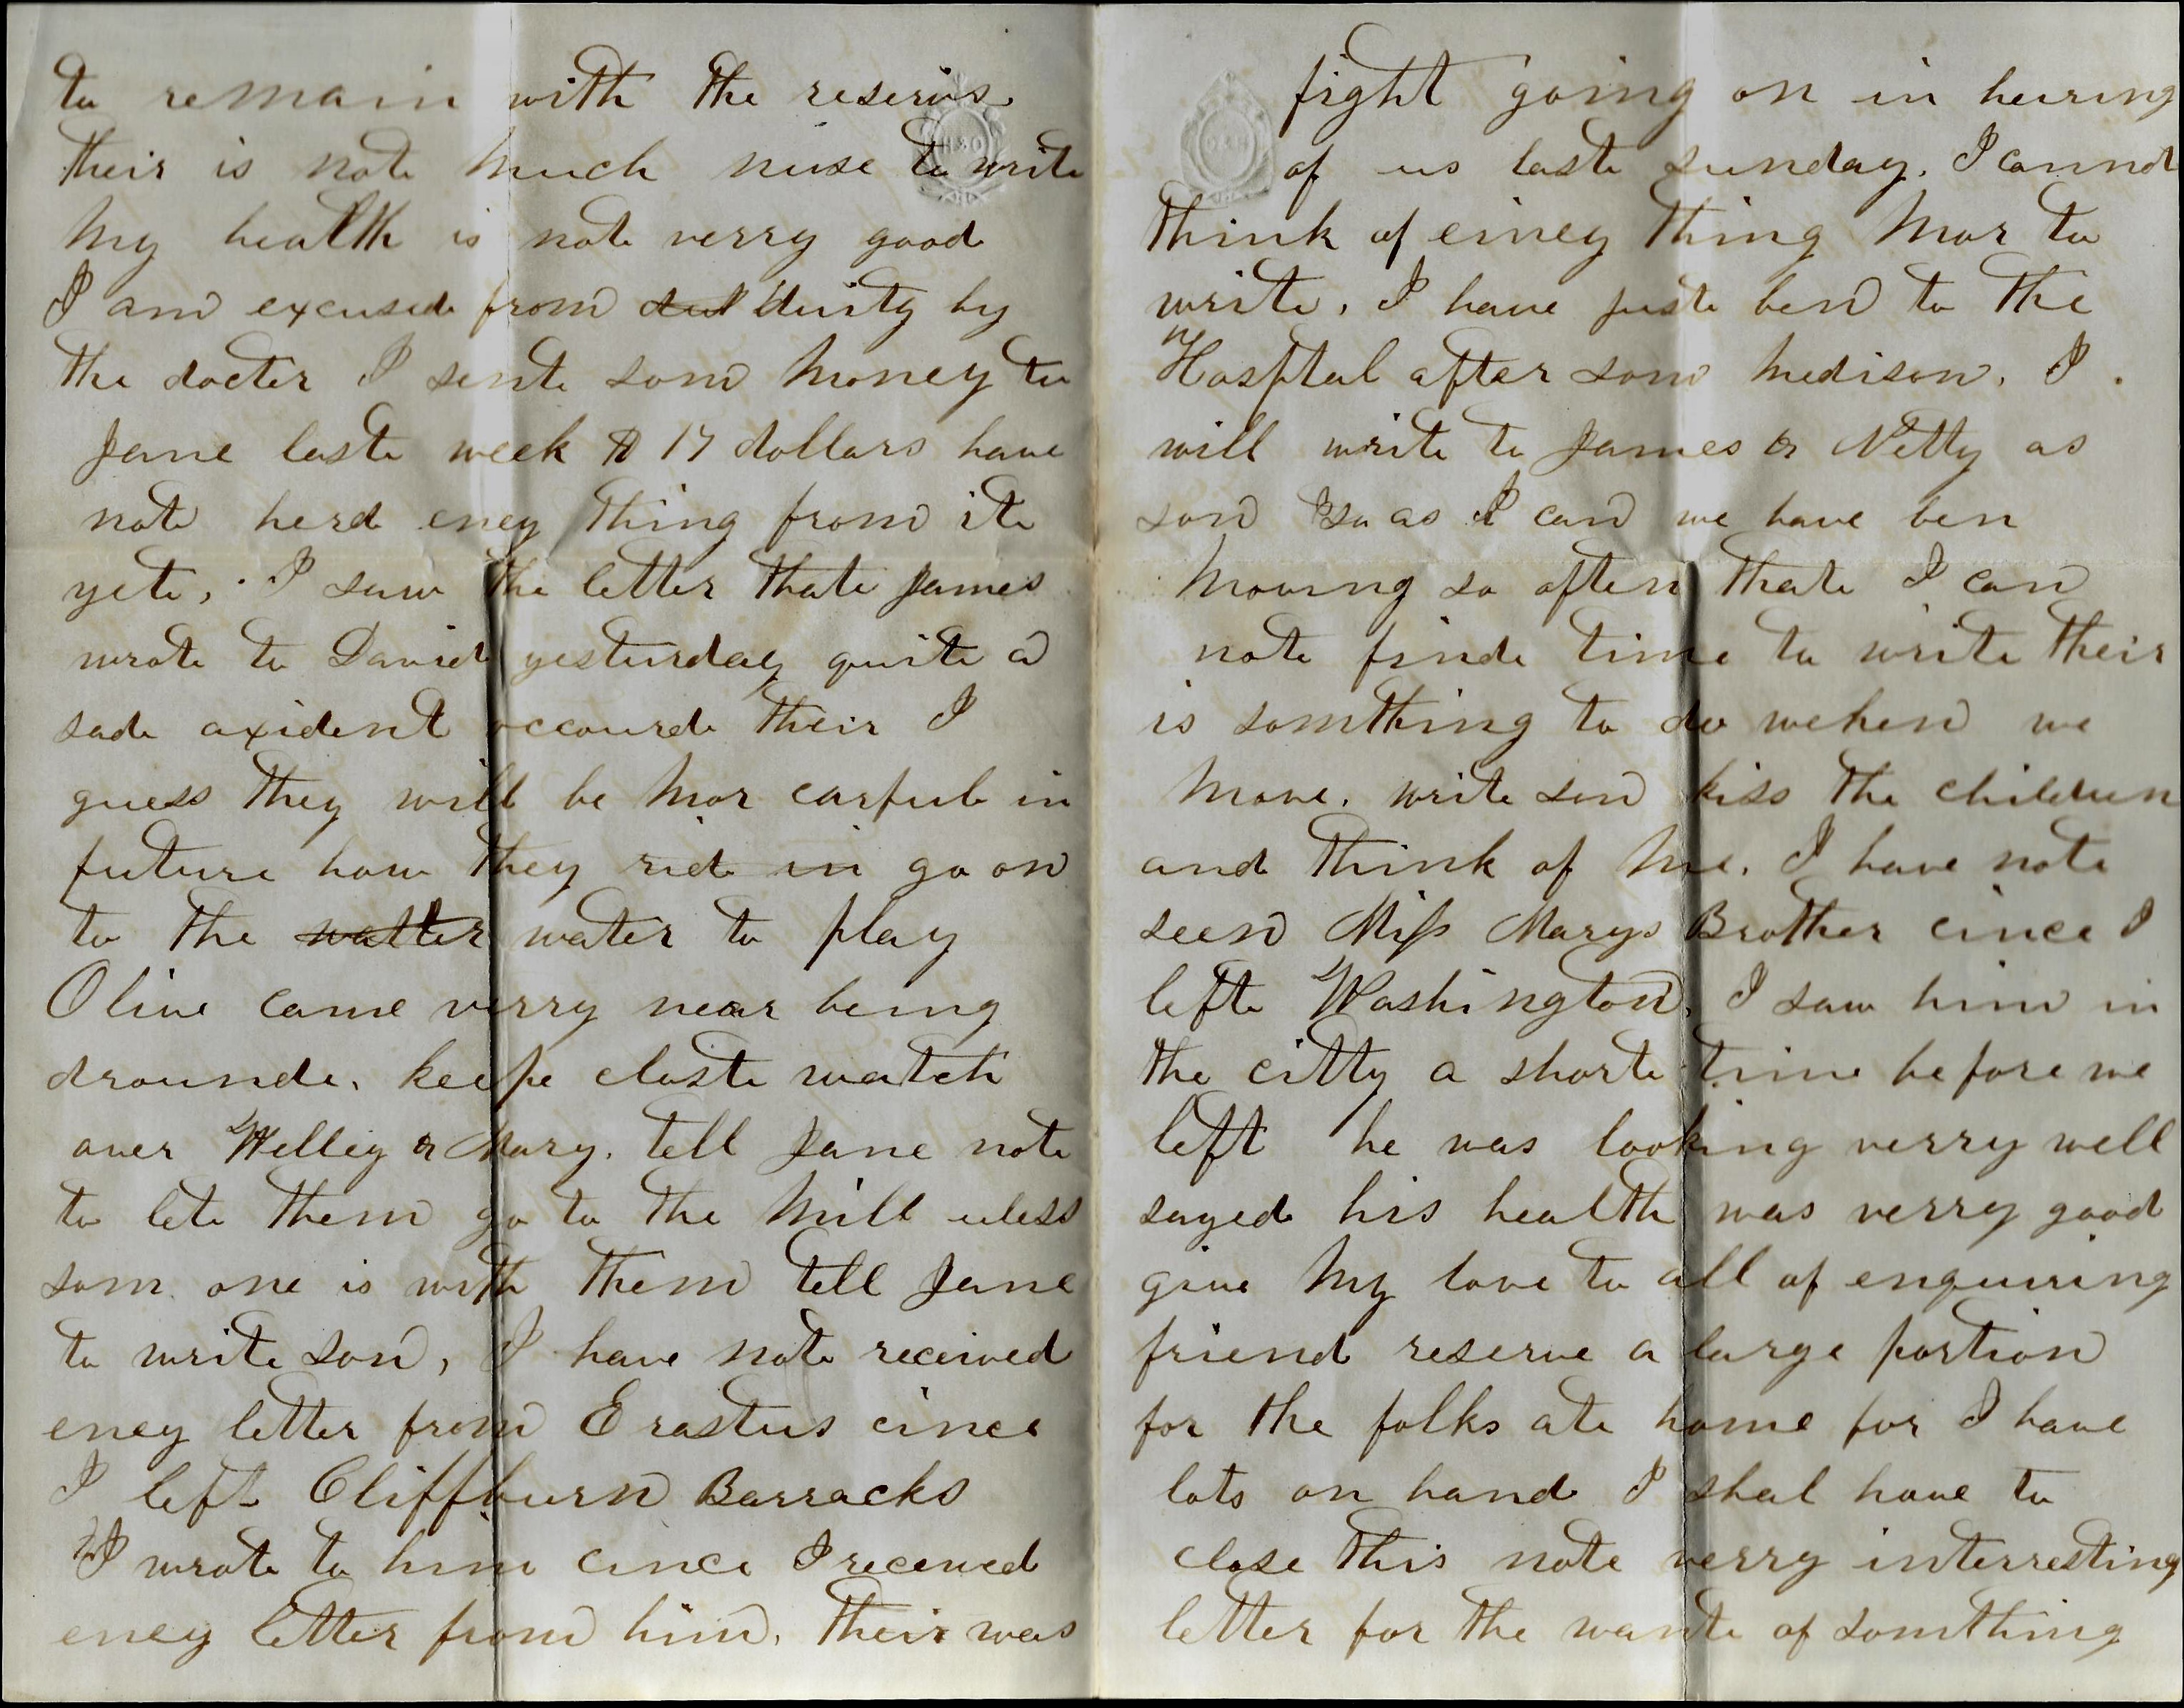 to remain with the reservs
their is note much nuse to write
My health is note verry good
I am excusede from dut duity by
the docter I sente som Money to
Jane laste week $ 17 dollars have
note herd eney thing from ite
yete, I saw the letter thate James
wrote to David yesturday quite a
sade axident occourde their I
guess they will be Mor carful in
future how they ride in go on
to the watter water to play
Olive came verry near being
drounde, keepe closte watch
over Welley & Mary. tell Jane note
to lete them go to the Mill uless
som one is with them tell Jane
to write son, I have note received
eney letter from Erastus cince
I left Cliffburn Barracks
I wrote to him cince I received
eney letter from him, their was
fight going on in hering
of us laste sunday. I cannot
think of einey thing Mor to
write. I have juste ben to the
Hospital after som Medison. I
will write to James & Netty as
son as I can we have ben
Moving so often thate I can
note finde time to write their
is somthing to do wehen we
Move. write son kiss the children
and think of Me. I have note
seen Miss Marys Brother cince I
lefte Washington. I saw him in
the citty a shorte time before we
left he was looking verry well
sayed his health was verry good
give My love to all of enquiring
friend reserve a large portion
for the folks ate home for I have
lots on hand I shal have to
close this note verry interresting
letter for the wante of somthing